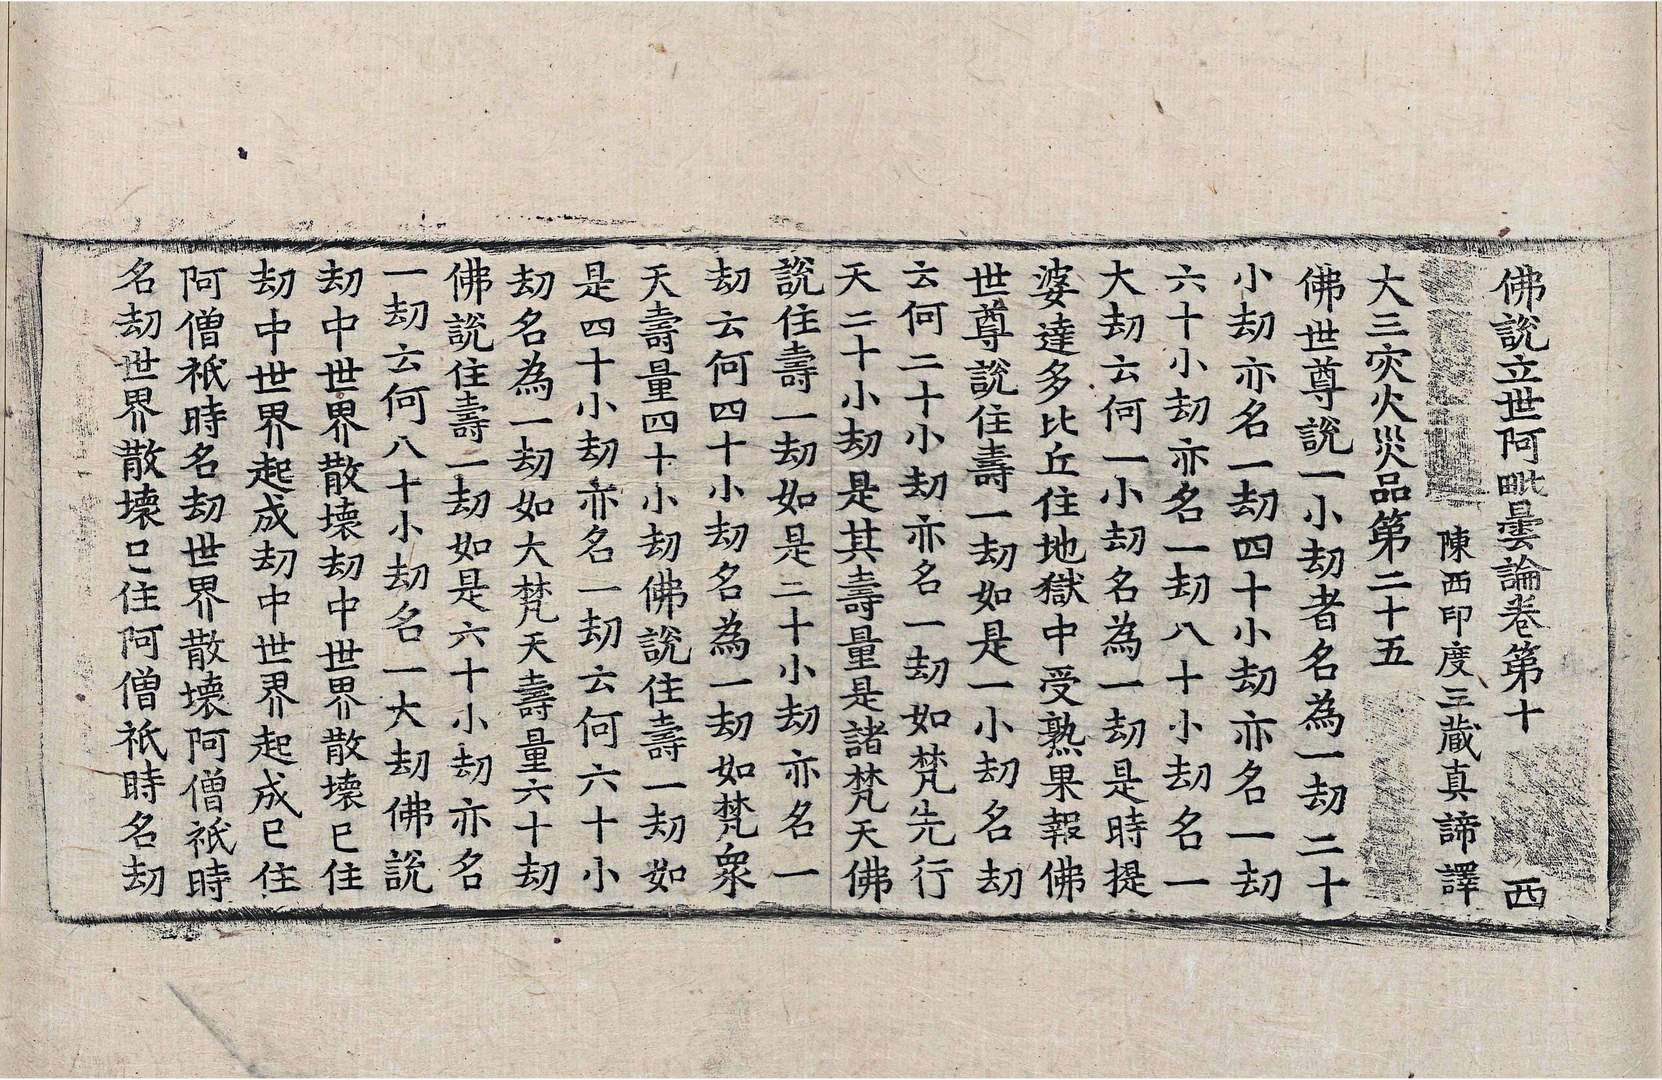 佛說立世阿毗曇論卷第十 西
陳西印度三藏真諦譯
大三灾火災品第二十五
佛世尊說一小劫者名為一劫二十
小劫亦名一劫四十小劫亦名一劫
六十小劫亦名一劫八十小劫名一
大劫云何一小劫名為一劫是時提
婆達多比丘住地獄中受熟果報佛
世尊說住壽一劫如是一小劫名劫
云何二十小劫亦名一劫如梵先行
天二十小劫是其壽量是諸梵天佛
說住壽一劫如是二十小劫亦名一
劫云何四十小劫名為一劫如梵衆
天壽量四十小劫佛說住壽一劫如
是四十小劫亦名一劫云何六十小
劫名為一劫如大梵天壽量六十劫
佛說住壽一劫如是六十小劫亦名
一劫云何八十小劫名一大劫佛說
劫中世界散壞劫中世界散壞已住
劫中世界起成劫中世界起成已住
阿僧祇時名劫世界散壞阿僧祇時
名劫世界散壞已住阿僧祇時名劫